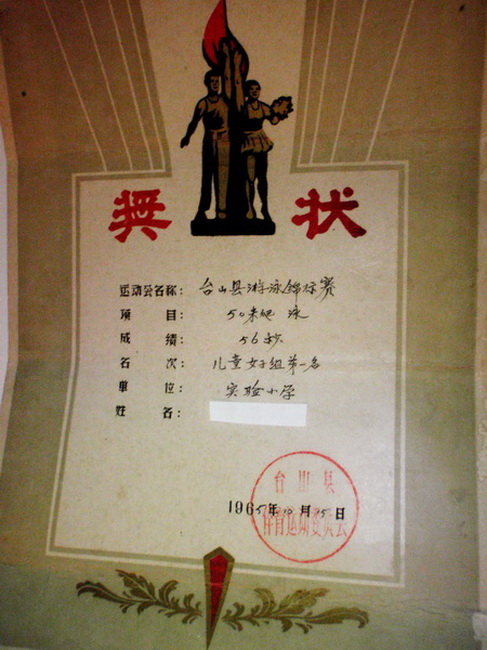 奖状
运动会名称：台山县游泳锦标赛
项目：50米爬泳
成绩：56秒
名次：儿童女子组第一名
单位：实验小学
姓名：
台山县
体育运动委员会
1965年10月15日